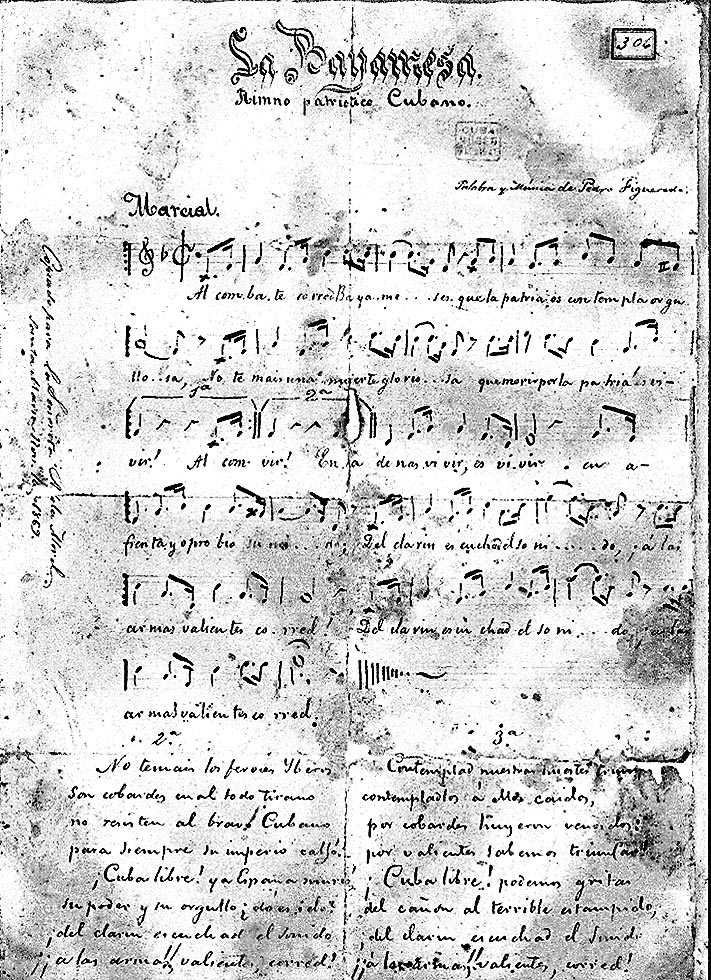 306
La Bayamesa.
Himno patriótico Cubano.
CUBA
Palabra y Música de Pedro Figueredo.
Marcial.
Al com.ba.te corred Ba ya.me... ses. que la patria os con tem pla or gu
llo..sa, No te mais una muerte glorio..sa que morir por la pa tria es vi-
1ª 2ª
vir! Al com- vir! En ca de nas vi vir, es vi.vir . en a-
frenta y opro bio su mi... do, Del cla rin es cuchad el so ni..... do, ¡á las
ar mas valientes co..rred! Del cla rin, es cu chad el so ni... do, ¡a las
ar mas valientes co rred.
2.ª
No temais los feroces Yberos
son cobardes cual todo tirano
no resisten al bravo Cubano
para siempre su imperio cayó.
¡Cuba libre! ya España murió
su poder y su orgullo ¿dó es ido?
¡del clarin escuchad el sonido
¡¡a las armas!! valientes, corred!
3.ª
Contemplad nuestras huestes
contempladlos á ellos caidos,
por cobardes huyeron vencidos
por valientes sabemos triunfar!
¡Cuba libre! podemos gritar
del cañon al terrible estampido,
¡del clarin escuchad el sonido
¡¡a las armas!! valientes, corred!
Copiado para la Señorita